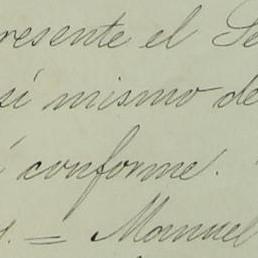 presente el Se
sí mismo de
conforme.
= Manuel